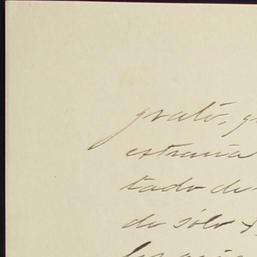 grato, q
estraña
tado de
do sólo